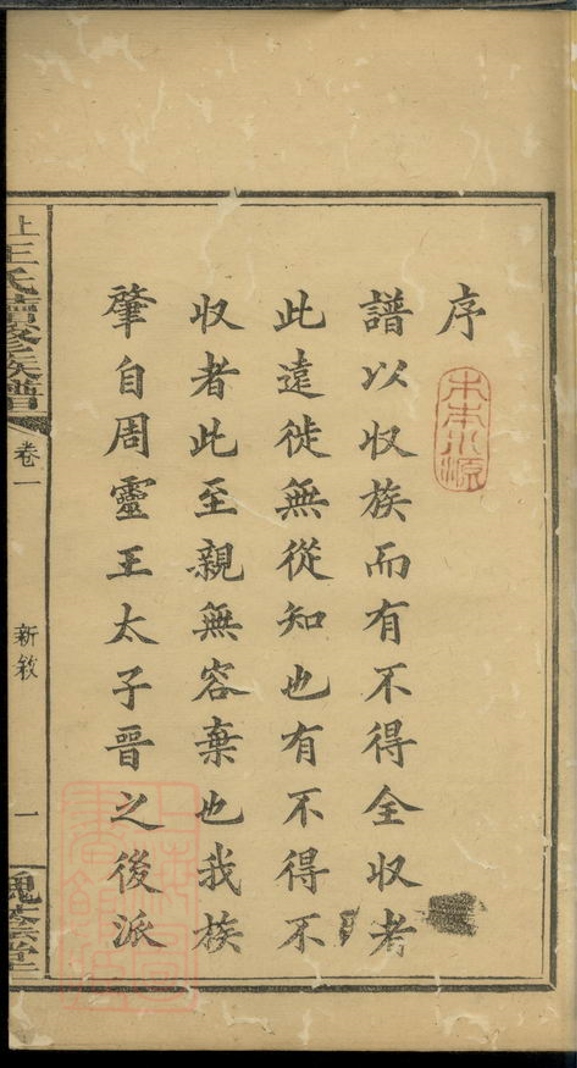 序
木本水源
譜以収族而有不得全収考
此遠徙無從知也有不得不
収者此至親無容棄也我族
肇自周靈王太子晉之後派
上
王氏續修族譜
卷一
新敘
一
槐蔭堂